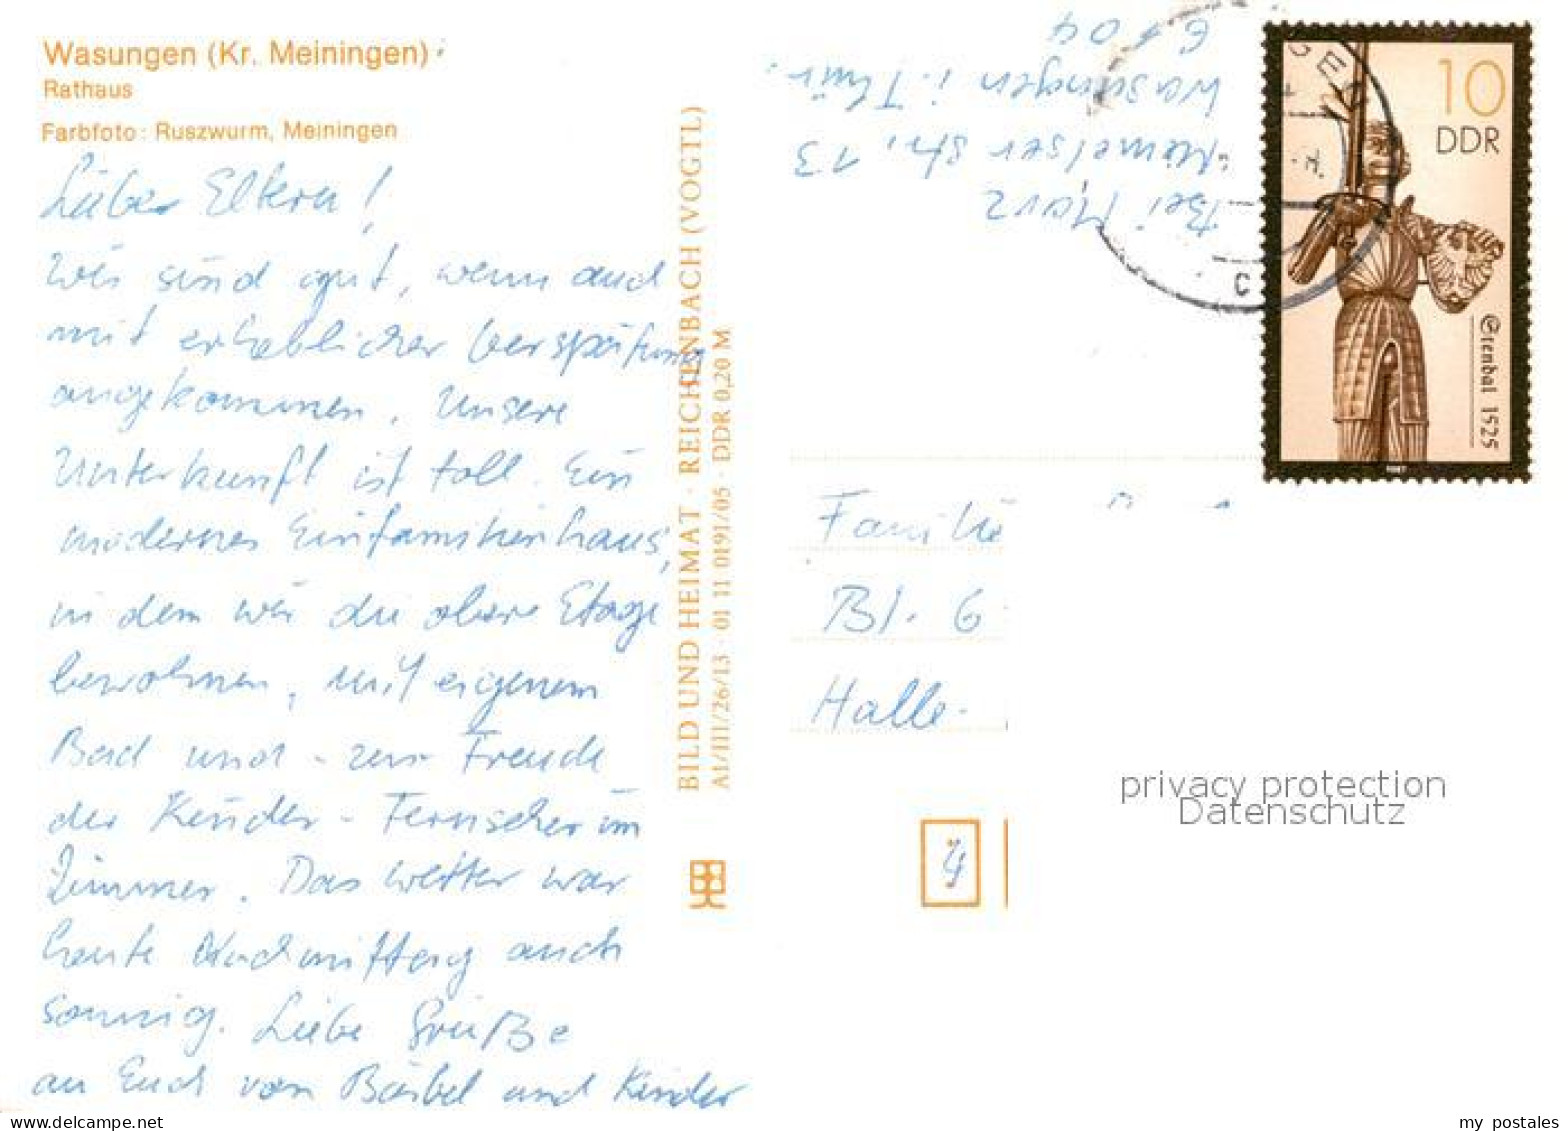 Wasungen (Kr. Meiningen)
Rathaus
Farbfoto: Ruszwurm, Meiningen
Liebe Eltern!
Wir sind gut, wenn auch
mit erheblicher Verspätung
angekommen. Unsere
Unterkunft ist toll. Ein
modernes Einfamilienhaus,
in dem wir die obere Etage
bewohnen, mit eigenem
Bad und - zur Freude
der Kinder - Fernseher im
Zimmer. Das Wetter war
heute Nachmittag auch
sonnig. Liebe Grüße
an Euch von Bärbel und Kinder
BILD UND HEIMAT · REICHENBACH (VOGTL)
A1/III/26/13 · 01 11 0191/05 · DDR 0,20 M
Bei Marz
str. 13
Wasungen i. Thür.
6104
10
DDR
Grenbal 1525
1987
C
Familie
Bl. 6
Halle
privacy protection
Datenschutz
my postales